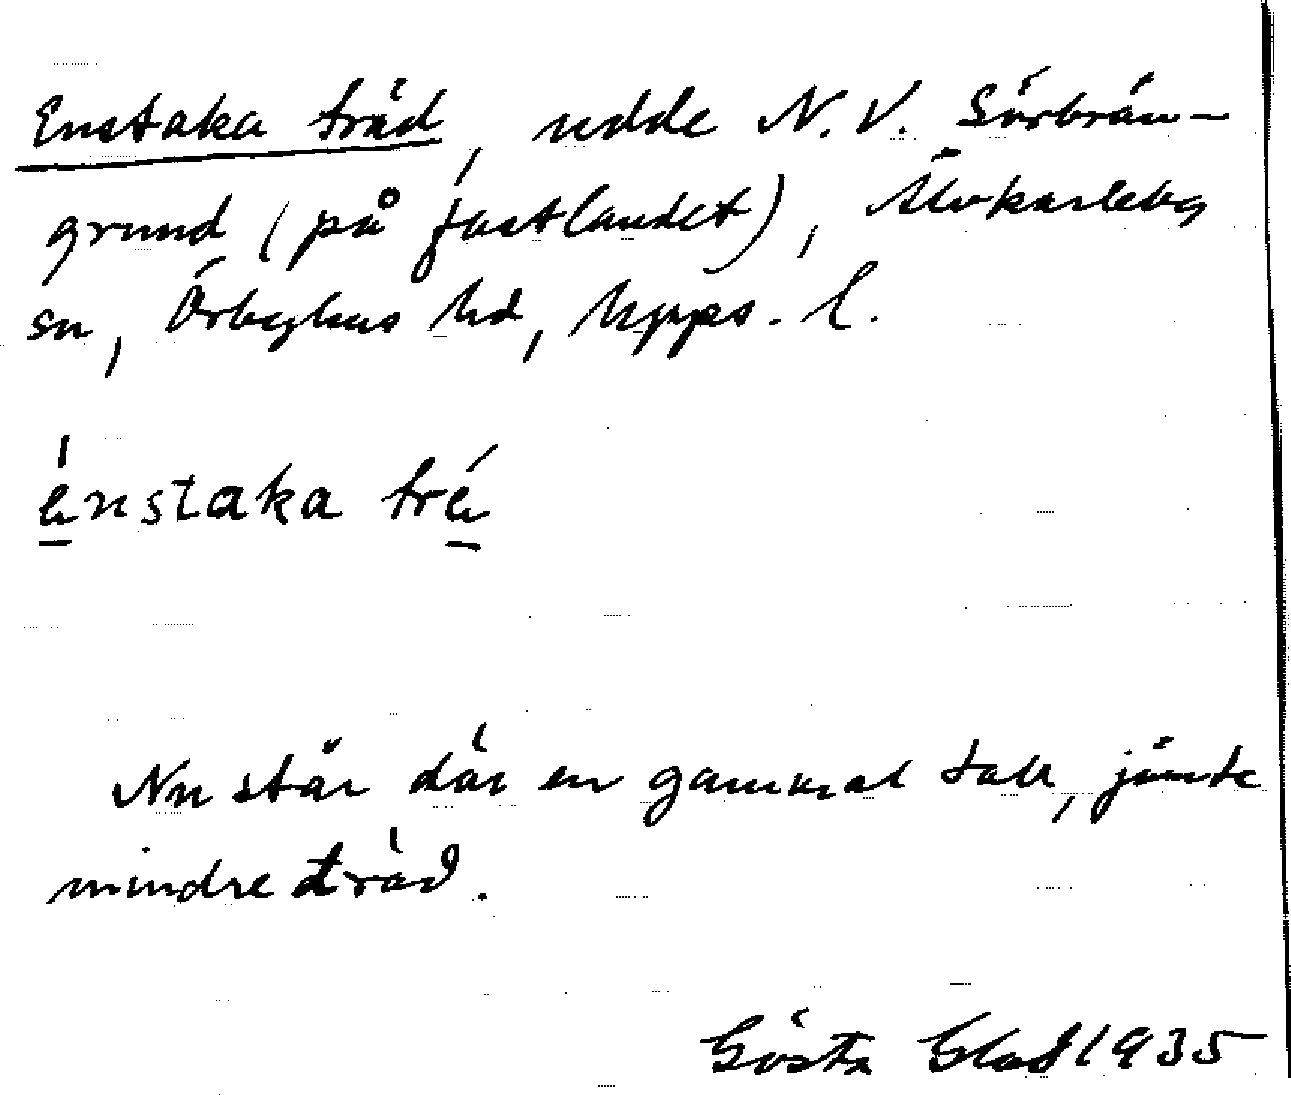 Enstaka träd, udde N.V. Sörbrän-
grund (på fastlandet), Älvkarleby
sn, Örbyhus hd, Upps. l.
énstaka tré
Nu står där en gammal tall, jämte
mindre träd.
Gösta Blad 1935